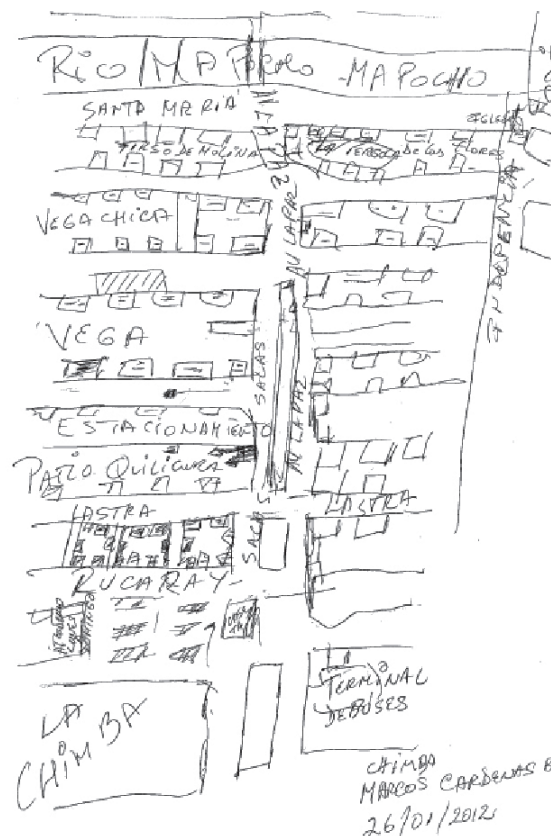 RIO MAPOCHO MAPOCHO
SANTA MARIA
IGLESIA
TIRSO DE MOLINA
LA PERGOLA DE LAS FLORES
VEGA CHICA
AV LA PAZ
INDEPENCIA
VEGA
SALAS
AV LA PAZ
ESTACIONAMIENTO
PATIO QUILICURA
LASTRA
LASTRA
SALAS
RUCARAY
LA
CHIMBA
TERMINAL
DE BUSES
CHIMBA
MARCOS CARDENAS B
26/01/2012